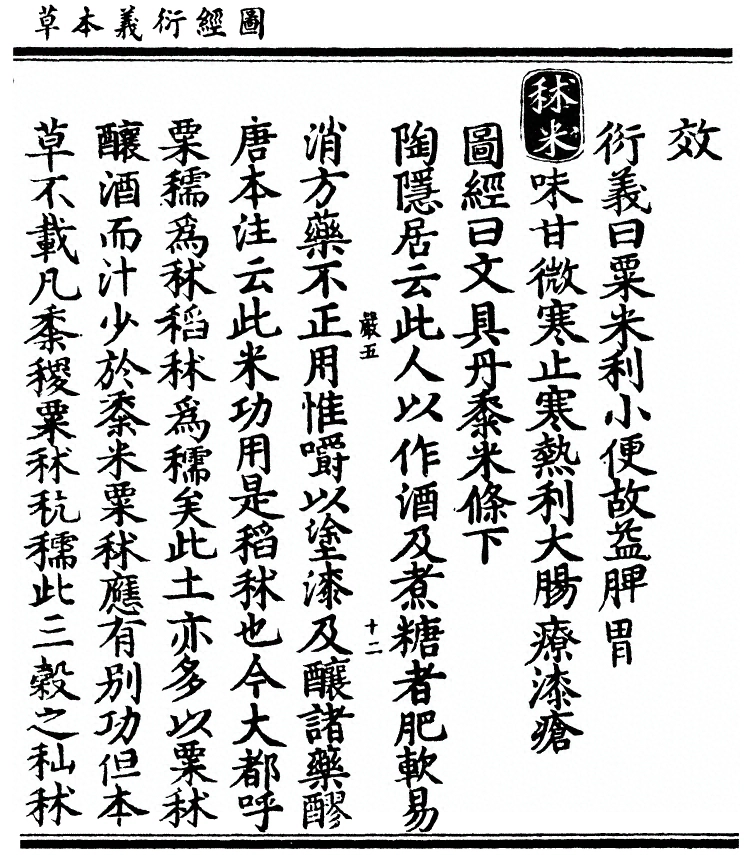 圖經衍義本草
效
衍義曰粟米利小便故益脾胃
秫米味甘微寒止寒熱利大腸療漆瘡
圖經曰文具丹黍米條下
陶隱居云此人以作酒及煮糖者肥軟易
嚴五 十二
消方藥不正用惟嚼以塗漆及釀諸藥醪
唐本注云此米功用是稻秫也今大都呼
粟穤爲秫稻秫爲穤矣此土亦多以粟秫
釀酒而汁少於黍米粟秫應有别功但本
草不載凡黍稷粟秫秔穤此三穀之秈秫